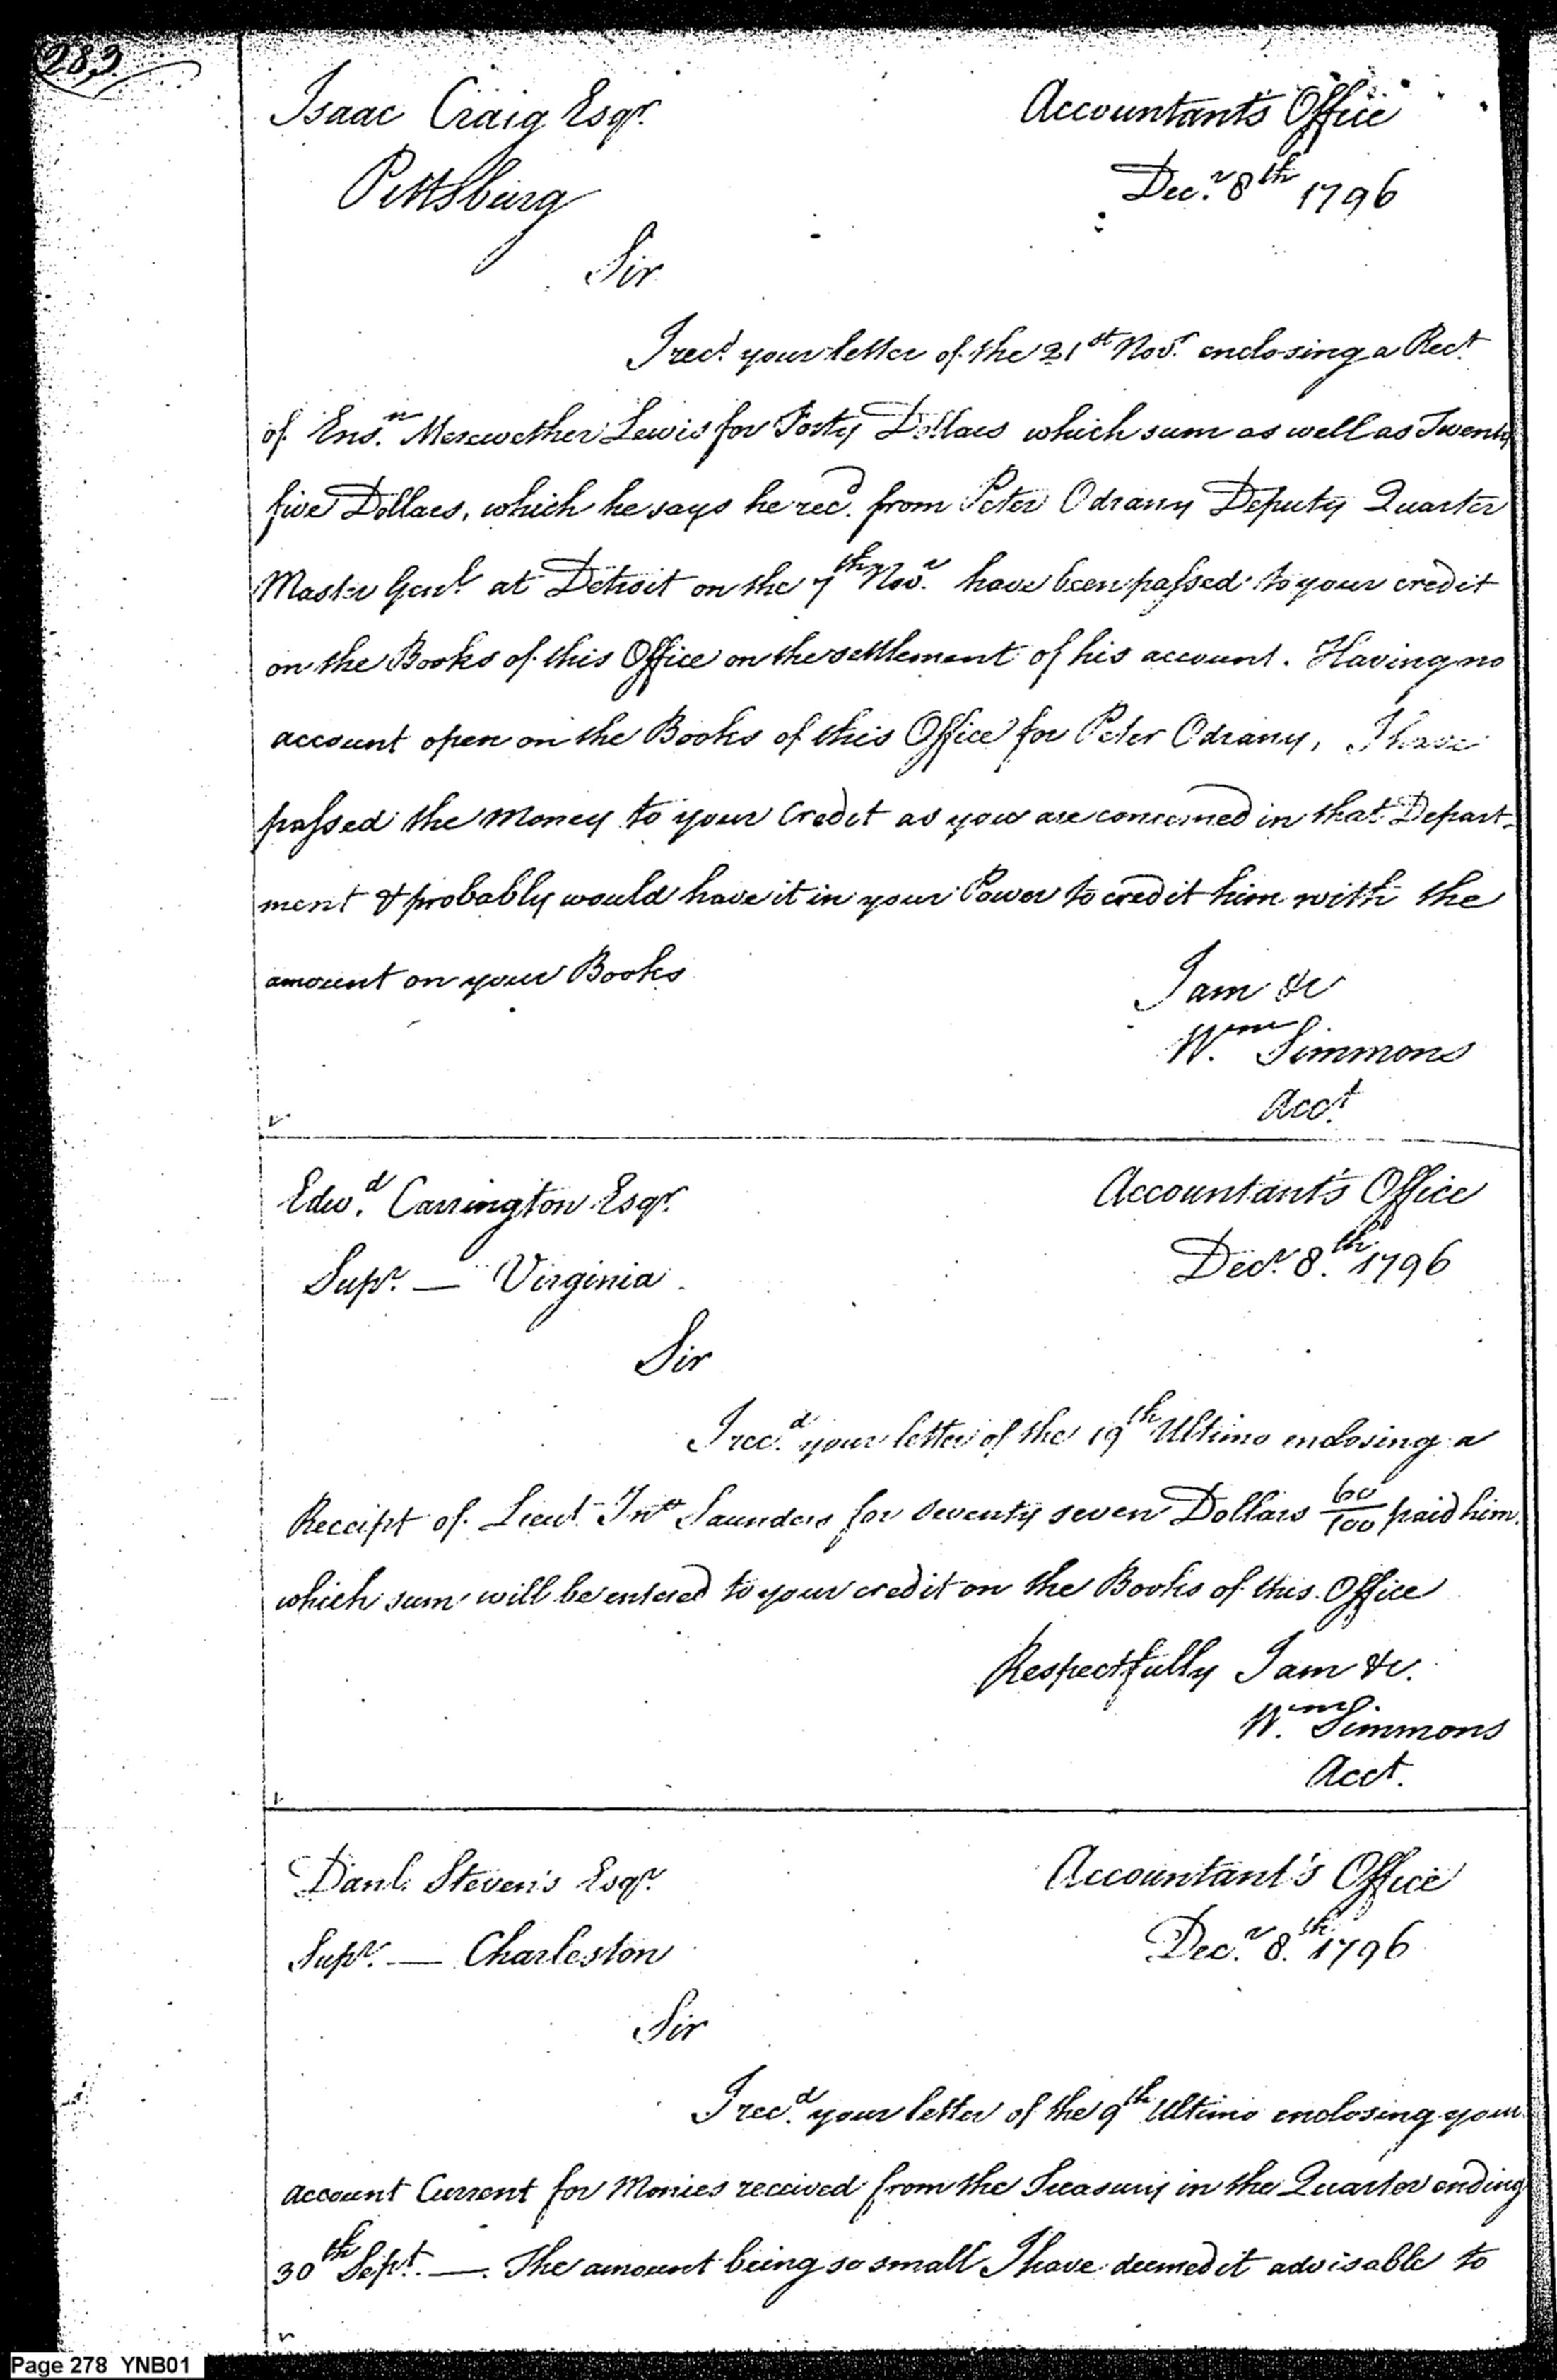 283
Isaac Craig Esqr. Accountant's Office
Pittsburg Decr. 8th 1796
Sir
I recd. your letter of the 21st Novr. enclosing a Rect.
of Ensn. Merewether Lewis for Forty Dollars which sum as well as Twenty
five Dollars, which he says he recd. from Peter Odrany Deputy Quarter
Master Genl. at Detroit on the 7th Novr. have been passed to your credit
on the Books of this Office on the settlement of his account. Having no
account open on the Books of this Office for Peter Odrany, I have
passed the Money to your Credit as you are concerned in that Depart-
ment & probably would have it in your Power to credit him with the
amount on your Books
I am &c
Wm. Simmons
Acct.
Edwd. Carrington Esqr. Accountant's Office
Supr. — Virginia Decr. 8th. 1796
Sir
I recd. your letter of the 19th Ultimo enclosing a
Receipt of Lieut. Jno. Saunders for seventy seven Dollars 60/100 paid him.
which sum will be entered to your credit on the Books of this Office
Respectfully I am &c.
Wm. Simmons
Acct.
Danl. Stevens Esqr. Accountant's Office
Supr. — Charleston Decr. 8th. 1796
Sir
I recd. your letter of the 9th Ultimo enclosing your
account Current for Monies received from the Treasury in the Quarter ending
30th Sept. —. The amount being so small I have deemed it advisable to
Page 278 YNB01